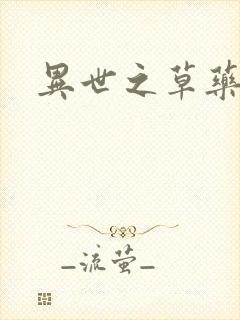 異世之草藥
_流螢_